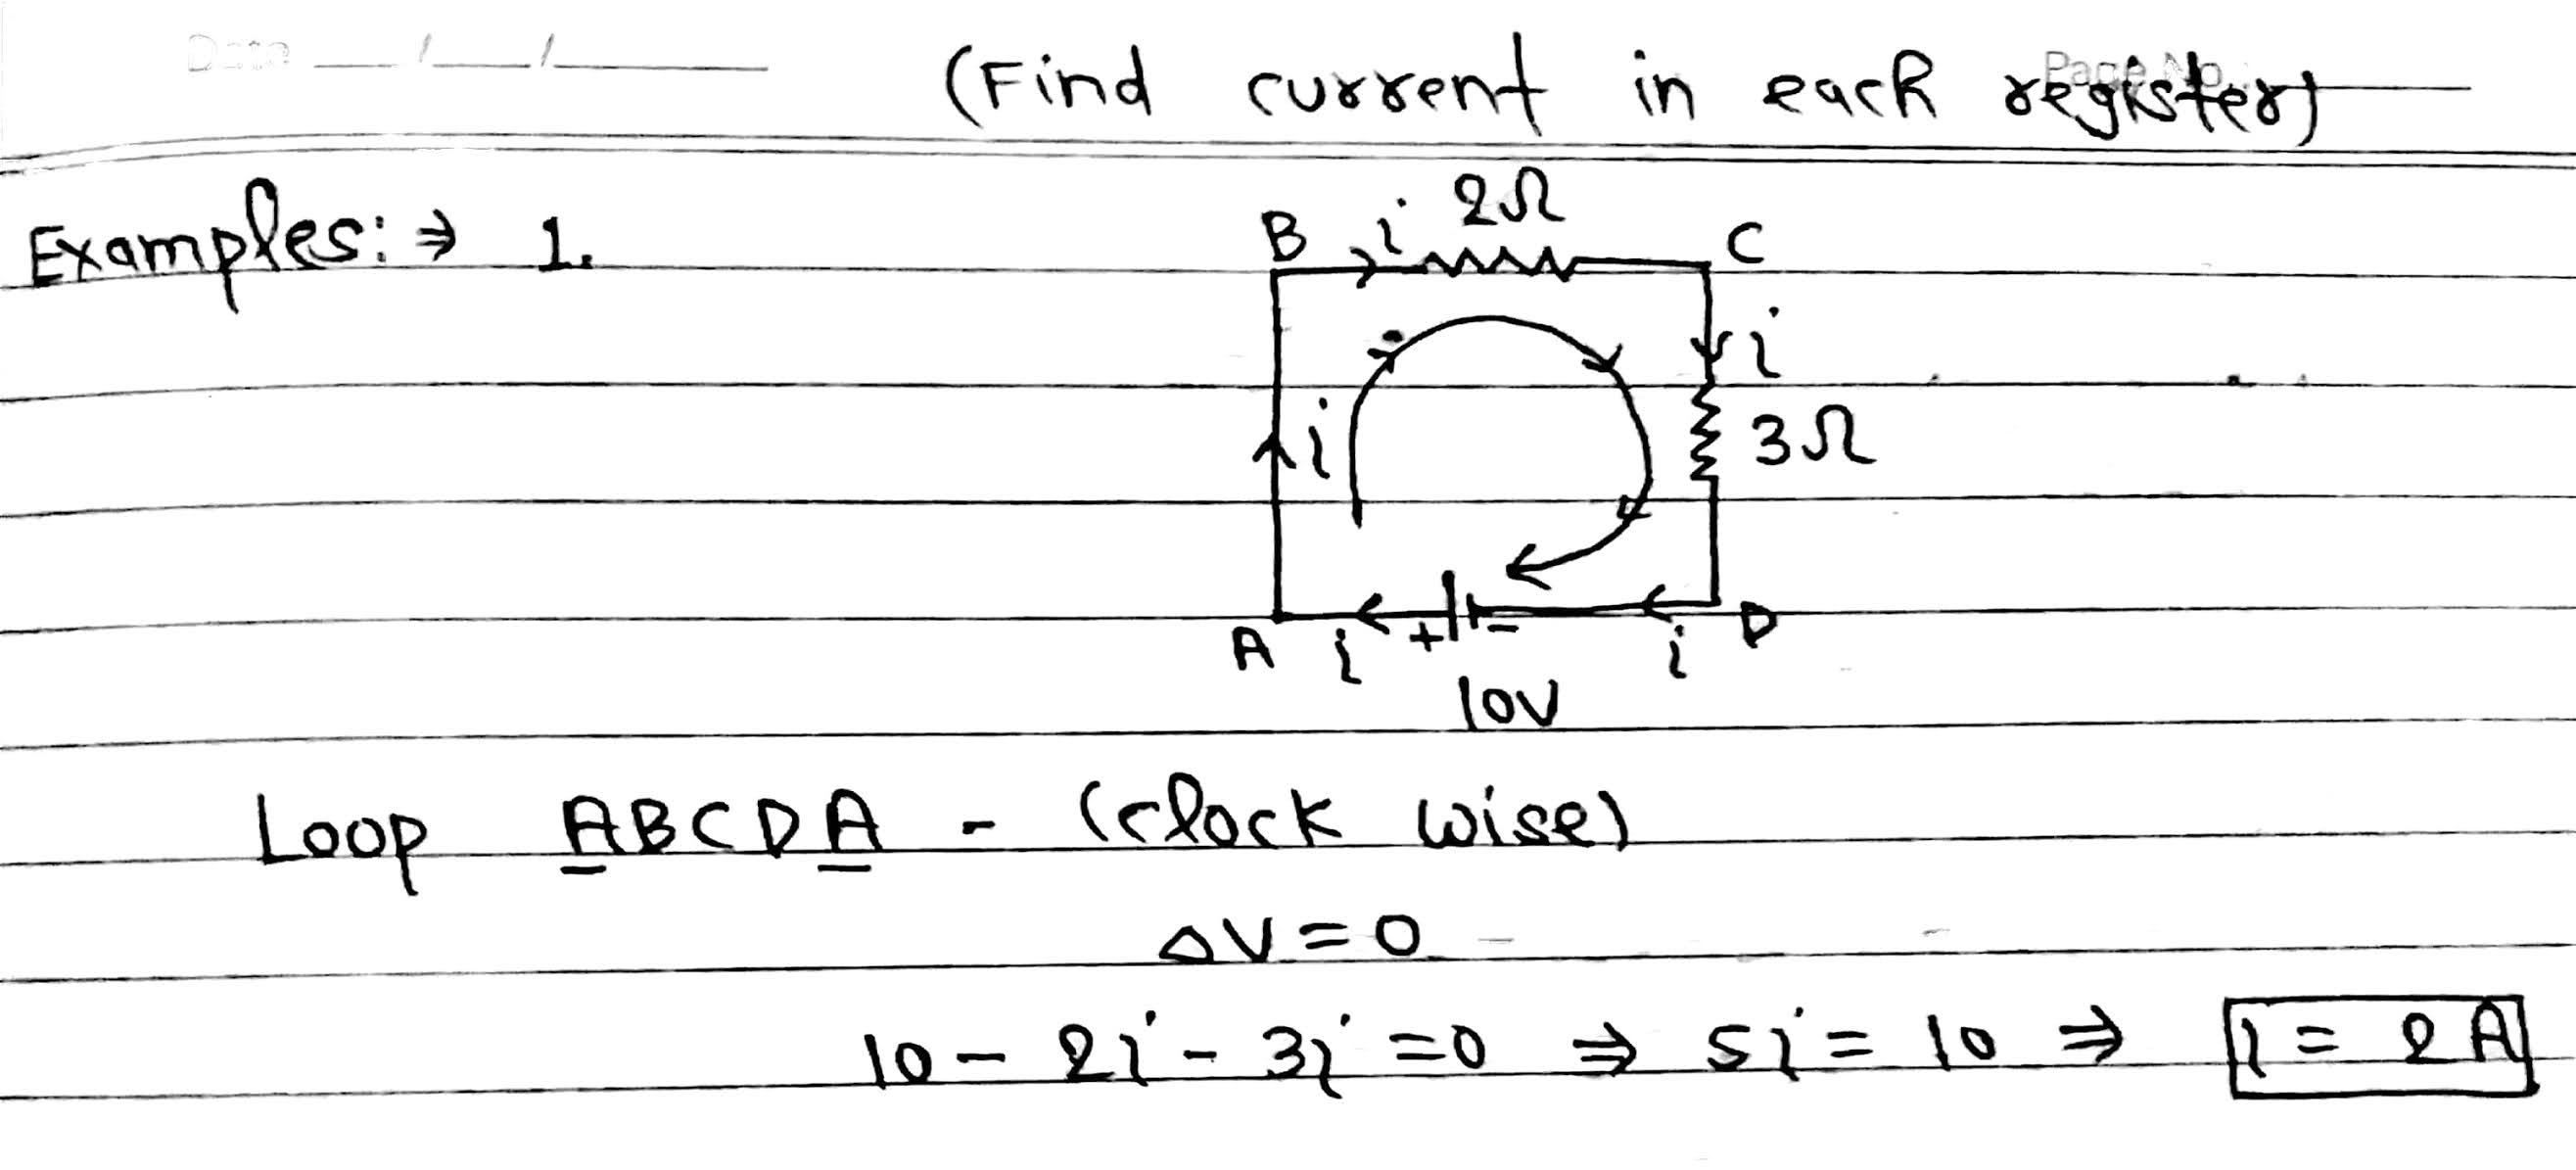 Date __/__/____
Page No.
(Find current in each register)
Examples:⇒ 1.
2Ω
B i C
i
i 3Ω
A i + - i D
10V
Loop ABCDA - (clock wise)
ΔV=0
10 - 2i - 3i =0 ⇒ 5i = 10 ⇒ i = 2A